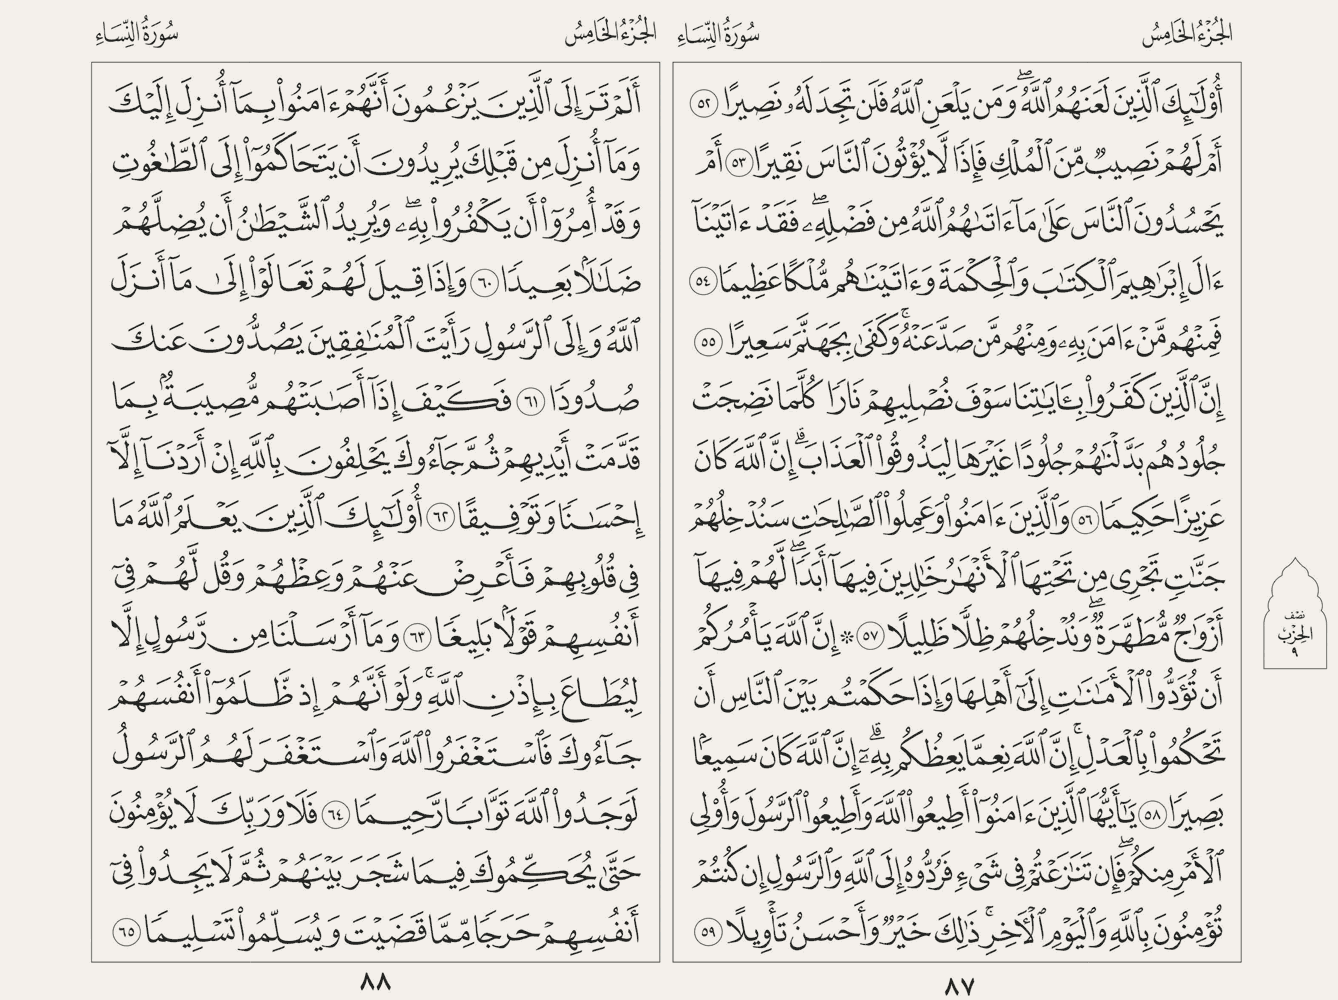 الجُزْءُ الخَامِسُ
سُورَةُ النِّسَاءِ
أُوْلَٰٓئِكَ ٱلَّذِينَ لَعَنَهُمُ ٱللَّهُۖ وَمَن يَلْعَنِ ٱللَّهُ فَلَن تَجِدَ لَهُۥ نَصِيرًا ٥٢
أَمْ لَهُمْ نَصِيبٌ مِّنَ ٱلْمُلْكِ فَإِذًا لَّا يُؤْتُونَ ٱلنَّاسَ نَقِيرًا ٥٣ أَمْ
يَحْسُدُونَ ٱلنَّاسَ عَلَىٰ مَآ ءَاتَىٰهُمُ ٱللَّهُ مِن فَضْلِهِۦۖ فَقَدْ ءَاتَيْنَآ
ءَالَ إِبْرَٰهِيمَ ٱلْكِتَٰبَ وَٱلْحِكْمَةَ وَءَاتَيْنَٰهُم مُّلْكًا عَظِيمًا ٥٤
فَمِنْهُم مَّنْ ءَامَنَ بِهِۦ وَمِنْهُم مَّن صَدَّ عَنْهُۚ وَكَفَىٰ بِجَهَنَّمَ سَعِيرًا ٥٥
إِنَّ ٱلَّذِينَ كَفَرُواْ بِـَٔايَٰتِنَا سَوْفَ نُصْلِيهِمْ نَارًا كُلَّمَا نَضِجَتْ
جُلُودُهُم بَدَّلْنَٰهُمْ جُلُودًا غَيْرَهَا لِيَذُوقُواْ ٱلْعَذَابَۗ إِنَّ ٱللَّهَ كَانَ
عَزِيزًا حَكِيمًا ٥٦ وَٱلَّذِينَ ءَامَنُواْ وَعَمِلُواْ ٱلصَّٰلِحَٰتِ سَنُدْخِلُهُمْ
جَنَّٰتٍ تَجْرِى مِن تَحْتِهَا ٱلْأَنْهَٰرُ خَٰلِدِينَ فِيهَآ أَبَدًاۖ لَّهُمْ فِيهَآ
أَزْوَٰجٌ مُّطَهَّرَةٌۖ وَنُدْخِلُهُمْ ظِلًّا ظَلِيلًا ٥٧ ۞ إِنَّ ٱللَّهَ يَأْمُرُكُمْ
أَن تُؤَدُّواْ ٱلْأَمَٰنَٰتِ إِلَىٰٓ أَهْلِهَا وَإِذَا حَكَمْتُم بَيْنَ ٱلنَّاسِ أَن
تَحْكُمُواْ بِٱلْعَدْلِۚ إِنَّ ٱللَّهَ نِعِمَّا يَعِظُكُم بِهِۦٓۗ إِنَّ ٱللَّهَ كَانَ سَمِيعًۢا
بَصِيرًا ٥٨ يَٰٓأَيُّهَا ٱلَّذِينَ ءَامَنُوٓاْ أَطِيعُواْ ٱللَّهَ وَأَطِيعُواْ ٱلرَّسُولَ وَأُوْلِى
ٱلْأَمْرِ مِنكُمْۖ فَإِن تَنَٰزَعْتُمْ فِى شَىْءٍ فَرُدُّوهُ إِلَى ٱللَّهِ وَٱلرَّسُولِ إِن كُنتُمْ
تُؤْمِنُونَ بِٱللَّهِ وَٱلْيَوْمِ ٱلْأَخِرِۚ ذَٰلِكَ خَيْرٌ وَأَحْسَنُ تَأْوِيلًا ٥٩
٨٧
نصف
الحزب
٩
الجُزْءُ الخَامِسُ
سُورَةُ النِّسَاءِ
أَلَمْ تَرَ إِلَى ٱلَّذِينَ يَزْعُمُونَ أَنَّهُمْ ءَامَنُواْ بِمَآ أُنزِلَ إِلَيْكَ
وَمَآ أُنزِلَ مِن قَبْلِكَ يُرِيدُونَ أَن يَتَحَاكَمُوٓاْ إِلَى ٱلطَّٰغُوتِ
وَقَدْ أُمِرُوٓاْ أَن يَكْفُرُواْ بِهِۦۖ وَيُرِيدُ ٱلشَّيْطَٰنُ أَن يُضِلَّهُمْ
ضَلَٰلًۢا بَعِيدًا ٦٠ وَإِذَا قِيلَ لَهُمْ تَعَالَوْاْ إِلَىٰ مَآ أَنزَلَ
ٱللَّهُ وَإِلَى ٱلرَّسُولِ رَأَيْتَ ٱلْمُنَٰفِقِينَ يَصُدُّونَ عَنكَ
صُدُودًا ٦١ فَكَيْفَ إِذَآ أَصَٰبَتْهُم مُّصِيبَةٌۢ بِمَا
قَدَّمَتْ أَيْدِيهِمْ ثُمَّ جَآءُوكَ يَحْلِفُونَ بِٱللَّهِ إِنْ أَرَدْنَآ إِلَّآ
إِحْسَٰنًا وَتَوْفِيقًا ٦٢ أُوْلَٰٓئِكَ ٱلَّذِينَ يَعْلَمُ ٱللَّهُ مَا
فِى قُلُوبِهِمْ فَأَعْرِضْ عَنْهُمْ وَعِظْهُمْ وَقُل لَّهُمْ فِىٓ
أَنفُسِهِمْ قَوْلًۢا بَلِيغًا ٦٣ وَمَآ أَرْسَلْنَا مِن رَّسُولٍ إِلَّا
لِيُطَاعَ بِإِذْنِ ٱللَّهِۚ وَلَوْ أَنَّهُمْ إِذ ظَّلَمُوٓاْ أَنفُسَهُمْ
جَآءُوكَ فَٱسْتَغْفَرُواْ ٱللَّهَ وَٱسْتَغْفَرَ لَهُمُ ٱلرَّسُولُ
لَوَجَدُواْ ٱللَّهَ تَوَّابًا رَّحِيمًا ٦٤ فَلَا وَرَبِّكَ لَا يُؤْمِنُونَ
حَتَّىٰ يُحَكِّمُوكَ فِيمَا شَجَرَ بَيْنَهُمْ ثُمَّ لَا يَجِدُواْ فِىٓ
أَنفُسِهِمْ حَرَجًا مِّمَّا قَضَيْتَ وَيُسَلِّمُواْ تَسْلِيمًا ٦٥
٨٨